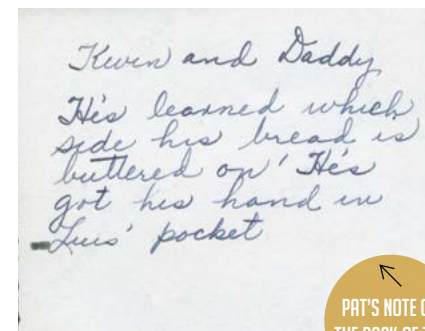 Kevin and Daddy
He's learned which
side his bread is
buttered on! He's
got his hand in
Luis' pocket
PAT'S NOTE O
THE BACK OF T